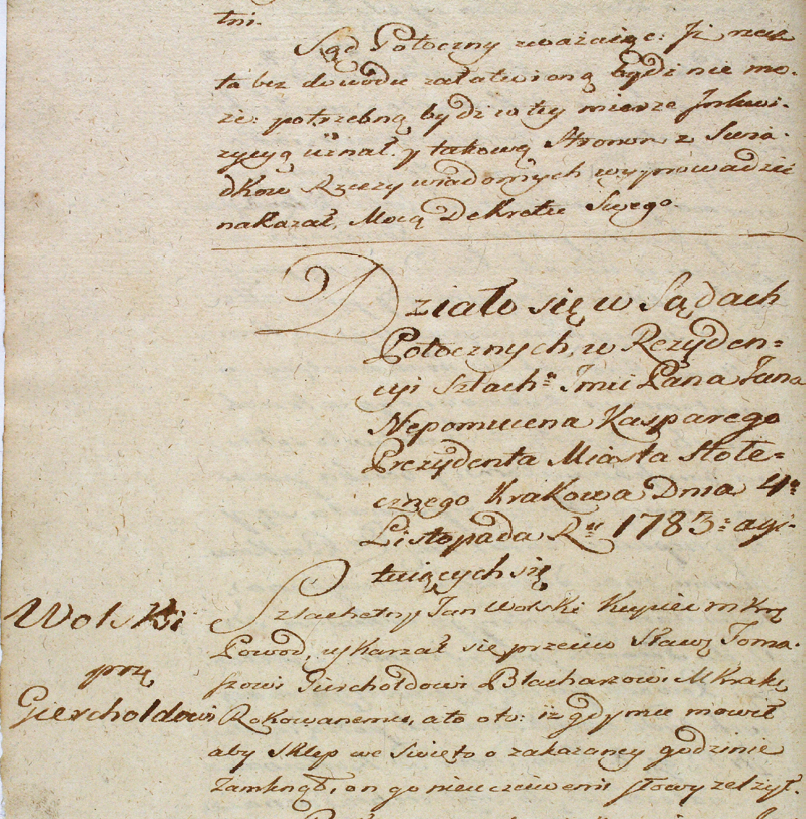 tni.
Sąd Potoczny zważaiąc: Jż rzecz
ta bez dowodu załatwioną bydź nie mo-
że: potrzebną bydź w tey mierze Jnkwi-
zycyą uznał, y takową Stronom z Swia-
dkow Rzeczy wiadomych wyprowadzić
nakazał, Mocą Dekretu Swego.
Działo się w Sądach
Potocznych, w Rezyden=
cyi Szlach: Jmci Pana Jana
Nepomucena Kasparego
Prezydenta Miasta Stołe=
cznego Krakowa Dnia 4
Listopada R 1785: agi-
tuiących się
Wolski
prz
Gierchołdowi
Szlachetny Jan Wolski Kupiec m Krą
Powod, uskarzał się przeciw Sławę Toma-
szowi Gierchołdowi Blacharzowi M Krakę
Rokowanemu, a to oto: iż gdy mu mowił
aby Sklep we Swięto o zakazaney godzinie
Zamknął, on go nieuczciwemi słowy zelżył.